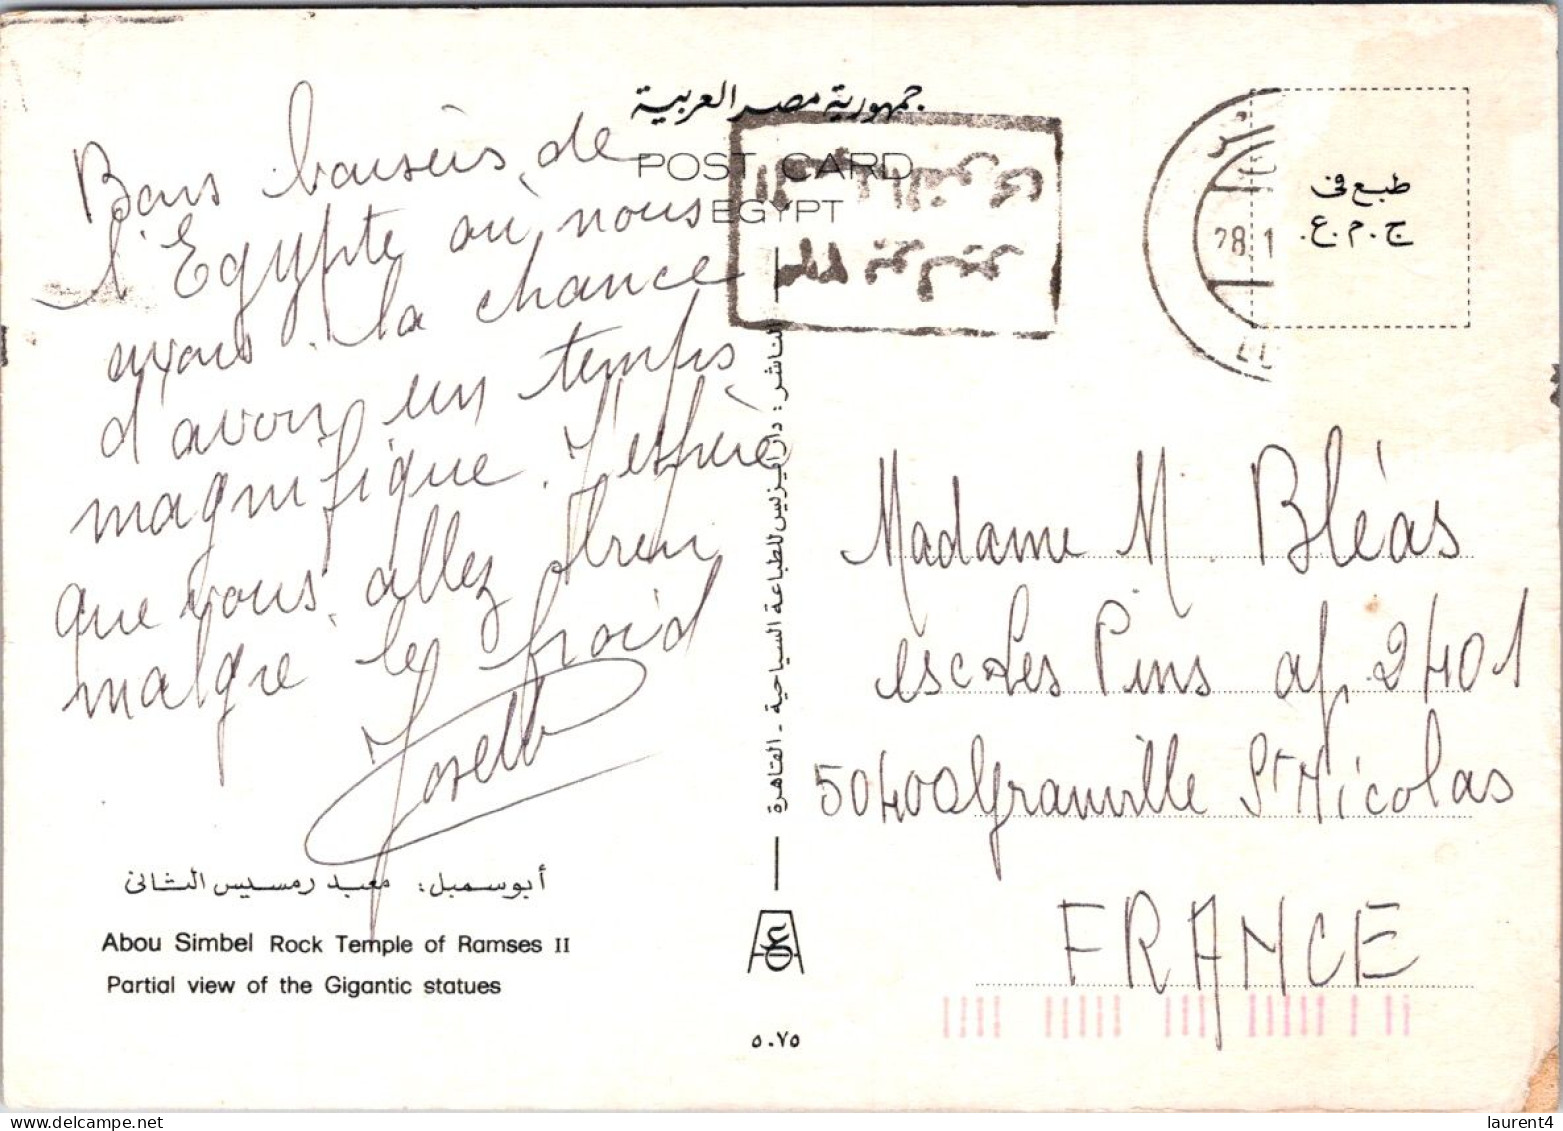 جمهورية مصر العربية
POST CARD
EGYPT
Bons baisers de
l'Egypte où nous
avons la chance
d'avoir un temps
magnifique. J'espère
que vous allez bien
malgré le froid
أبوسمبل: معبد رمسيس الثانى
Abou Simbel Rock Temple of Ramses II
Partial view of the Gigantic statues
للطباعة السياحية - القاهرة
٥٠٧٥
28.1
طبع فى
ج.م.ع.
Madame M. Bléas
esc Les Pins ap 2401
50400 Granville St Nicolas
FRANCE
laurent4